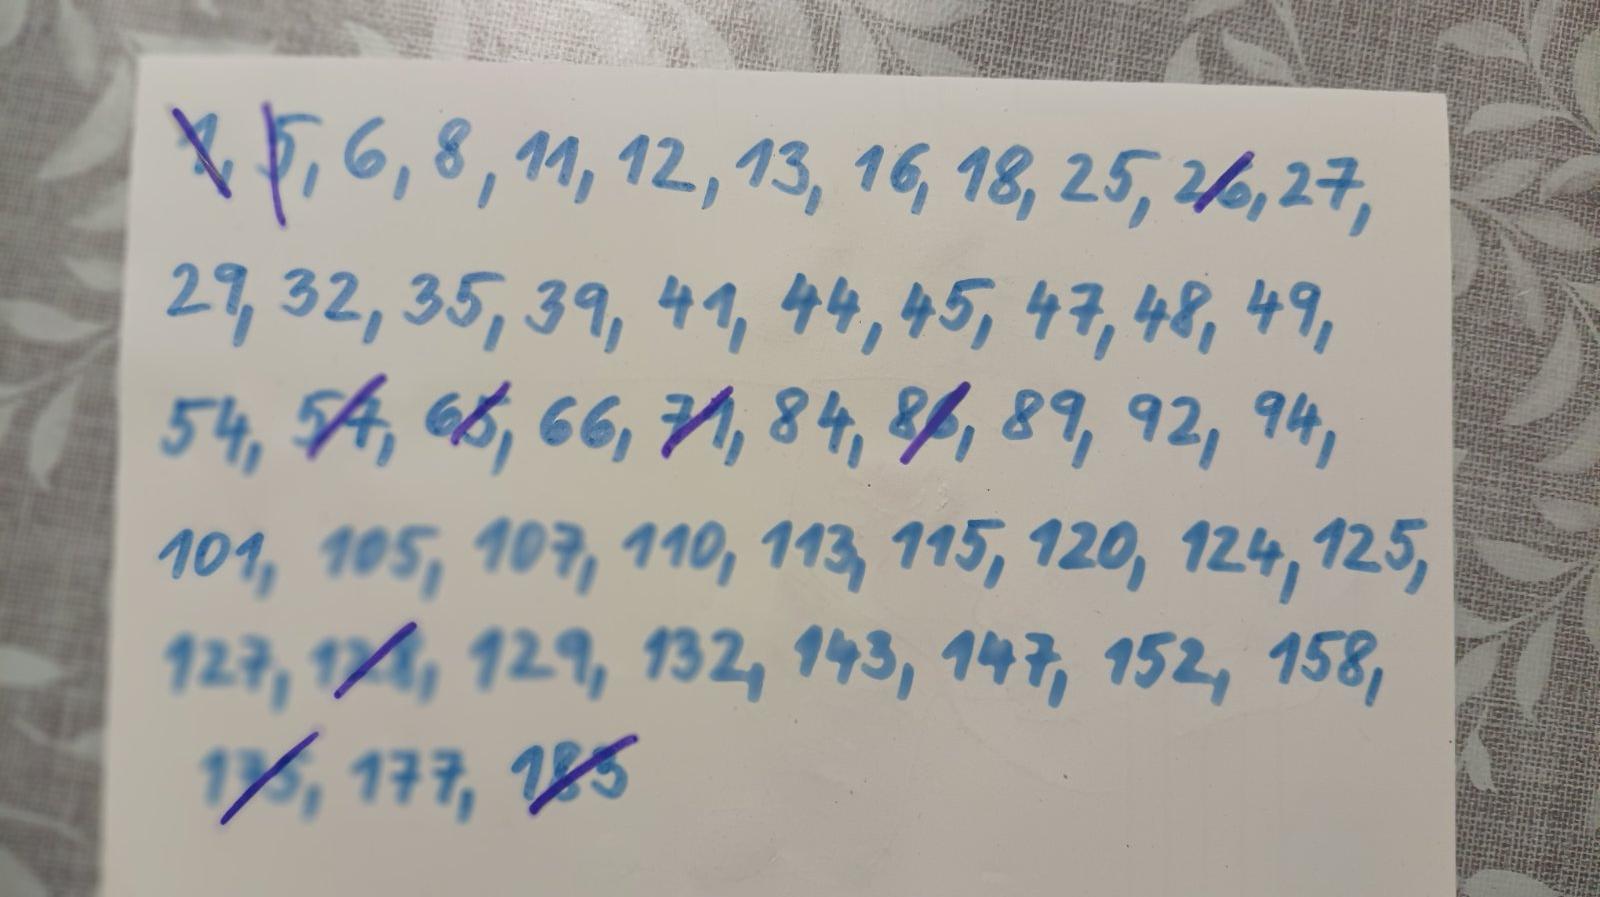 1, 5, 6, 8, 11, 12, 13, 16, 18, 25, 26, 27,
29, 32, 35, 39, 41, 44, 45, 47, 48, 49,
54, 57, 65, 66, 71, 84, 86, 89, 92, 94,
101, 105, 107, 110, 113, 115, 120, 124, 125,
127, 128, 129, 132, 143, 147, 152, 158,
175, 177, 183